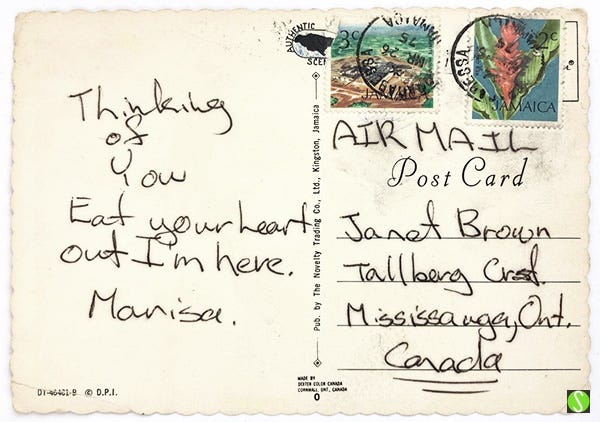 Thinking
of
You
Eat your heart
out I'm here.
Marisa.
DT-46401-B © D.P.I.
Pub. by The Novelty Trading Co., Ltd., Kingston, Jamaica
MADE BY
DEXTER COLOR CANADA
CORNWALL, ONT., CANADA
O
AUTHENTIC
3c
JAMAICA
2c
JAMAICA
JAMAICA
AIR MAIL
Post Card
Janet Brown
Tallberg Crst.
Mississauga, Ont.
Canada
S